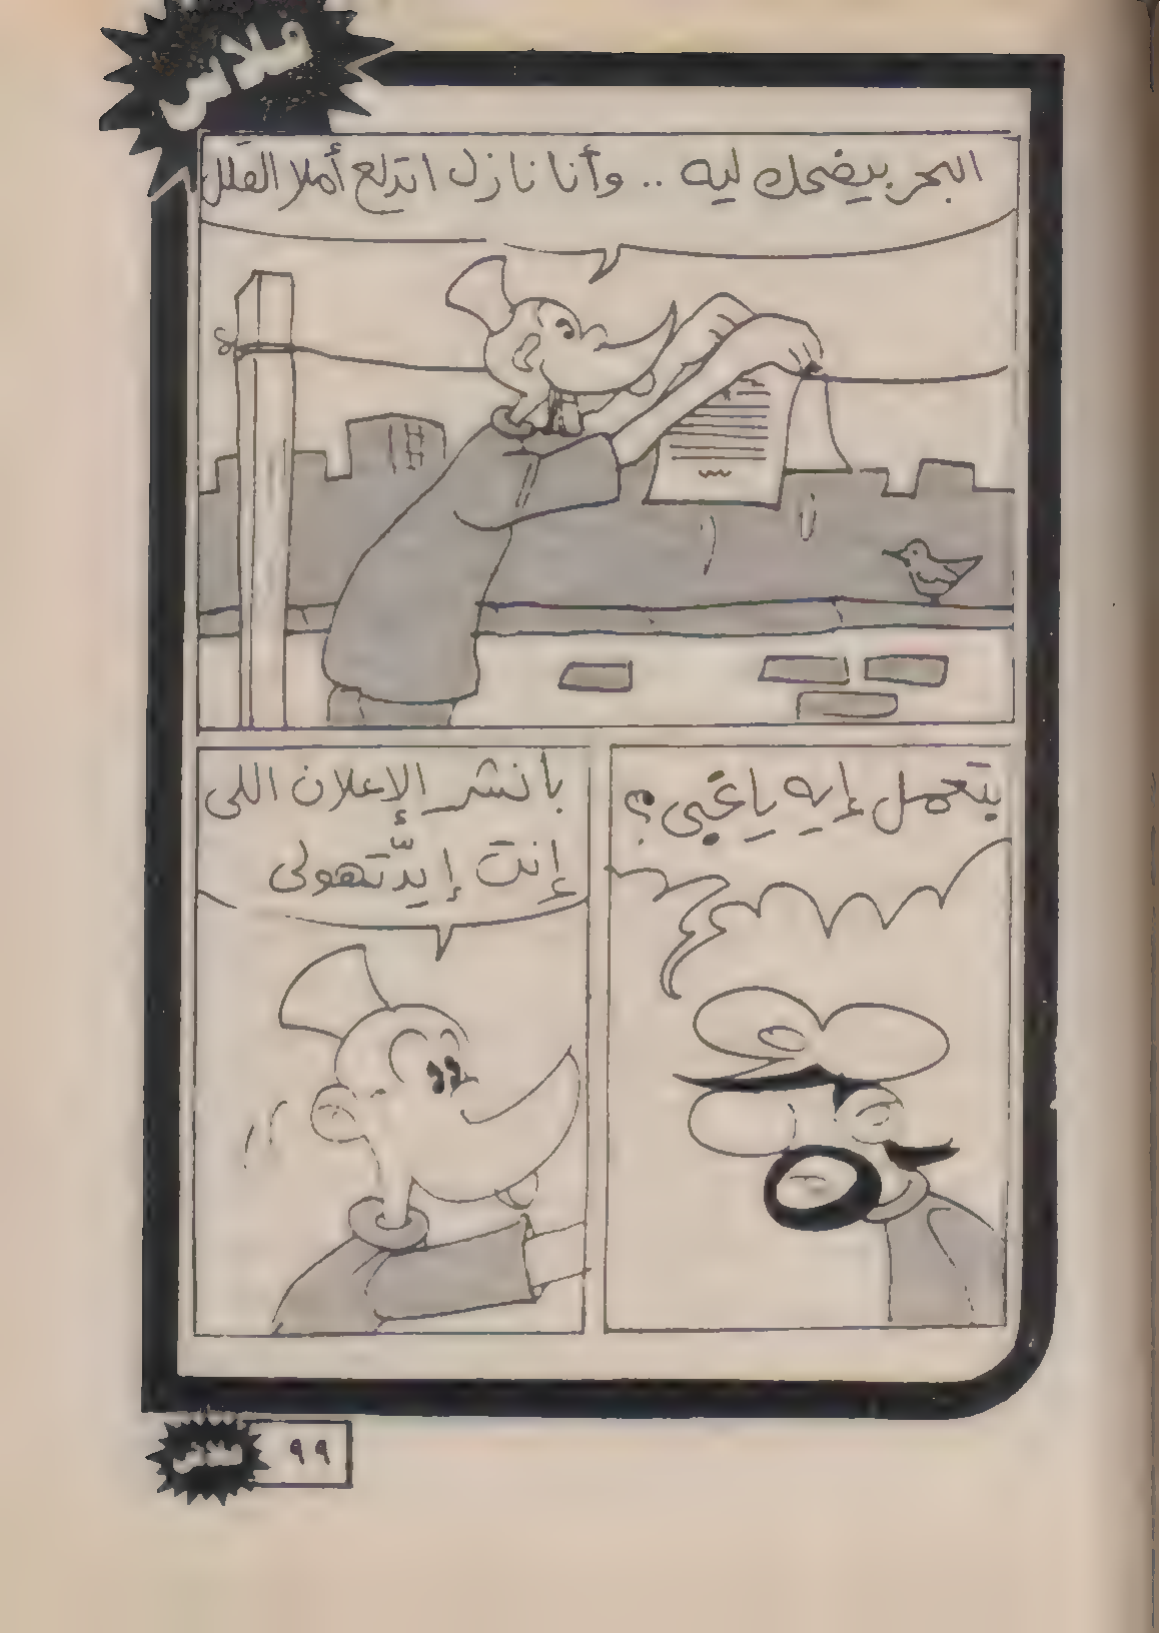 فلاس
البحر بيضحك ليه .. وأنا نازل اتدلع أملا القلل
بتعمل إيه يا غبى؟
بانشر الإعلان اللى
إنت إيدّتهولى
فلاش ٩٩